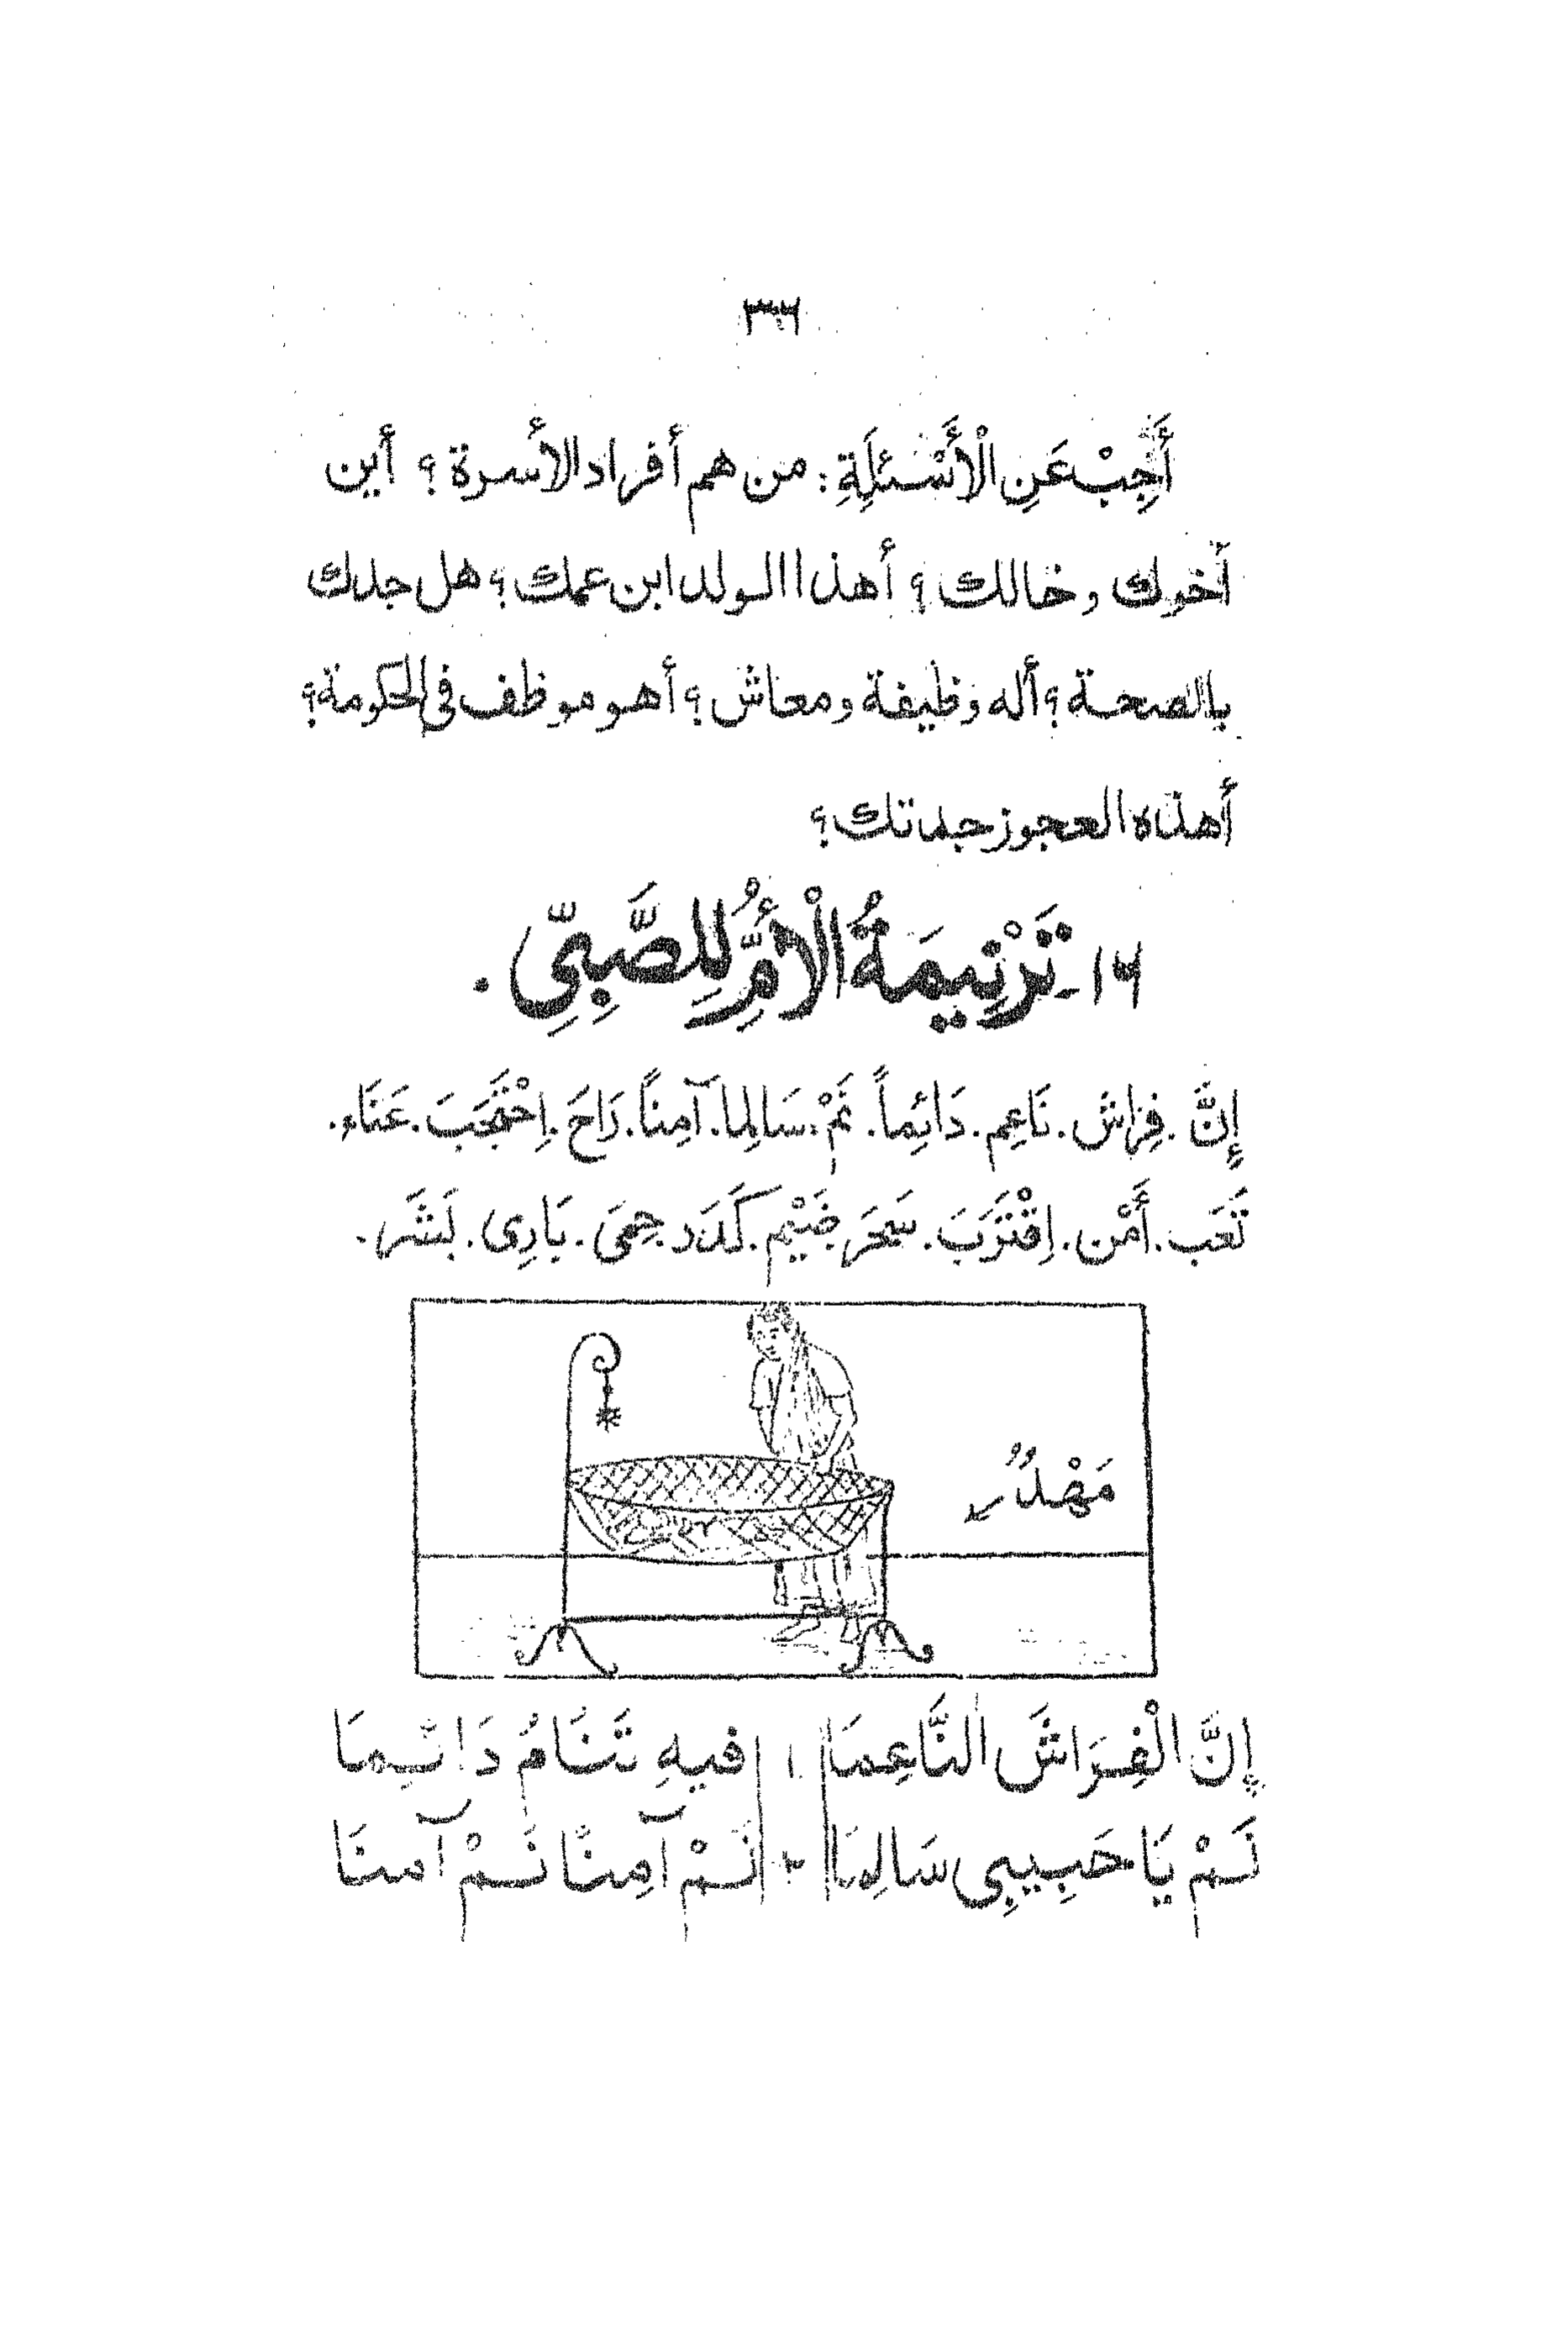 ٣٦
أَجِبْ عَنِ الْأَسْئِلَةِ: من هم أفراد الأسرة؟ أين
أخوك وخالك؟ أهذا الولد ابن عمك؟ هل جدك
بالصحة؟ أله وظيفة ومعاش؟ أهو موظف في الحكومة؟
أهذه العجوز جدتك؟
١٦- تَرْنِيمَةُ الْأُمِّ لِلصَّبِيِّ.
إِنَّ. فِرَاش. نَاعِم. دَائِماً. نَمْ. سَالِما. آمِناً. رَاحَ. اِحْتَجَبَ. عَنَاء.
تَعَب. أَمْن. اِقْتَرَبَ. سَحَر. ضَيْم. كَدَر. حِمَى. بَارِى. بَشَر.
مَهْدٌ
إِنَّ الْفِرَاشَ النَّاعِمَا ١ فيهِ تَنَامُ دَائِمَا
نَمْ يَا حَبِيبِي سَالِمَا ٢ نَمْ آمِنًا نَمْ آمِنَا